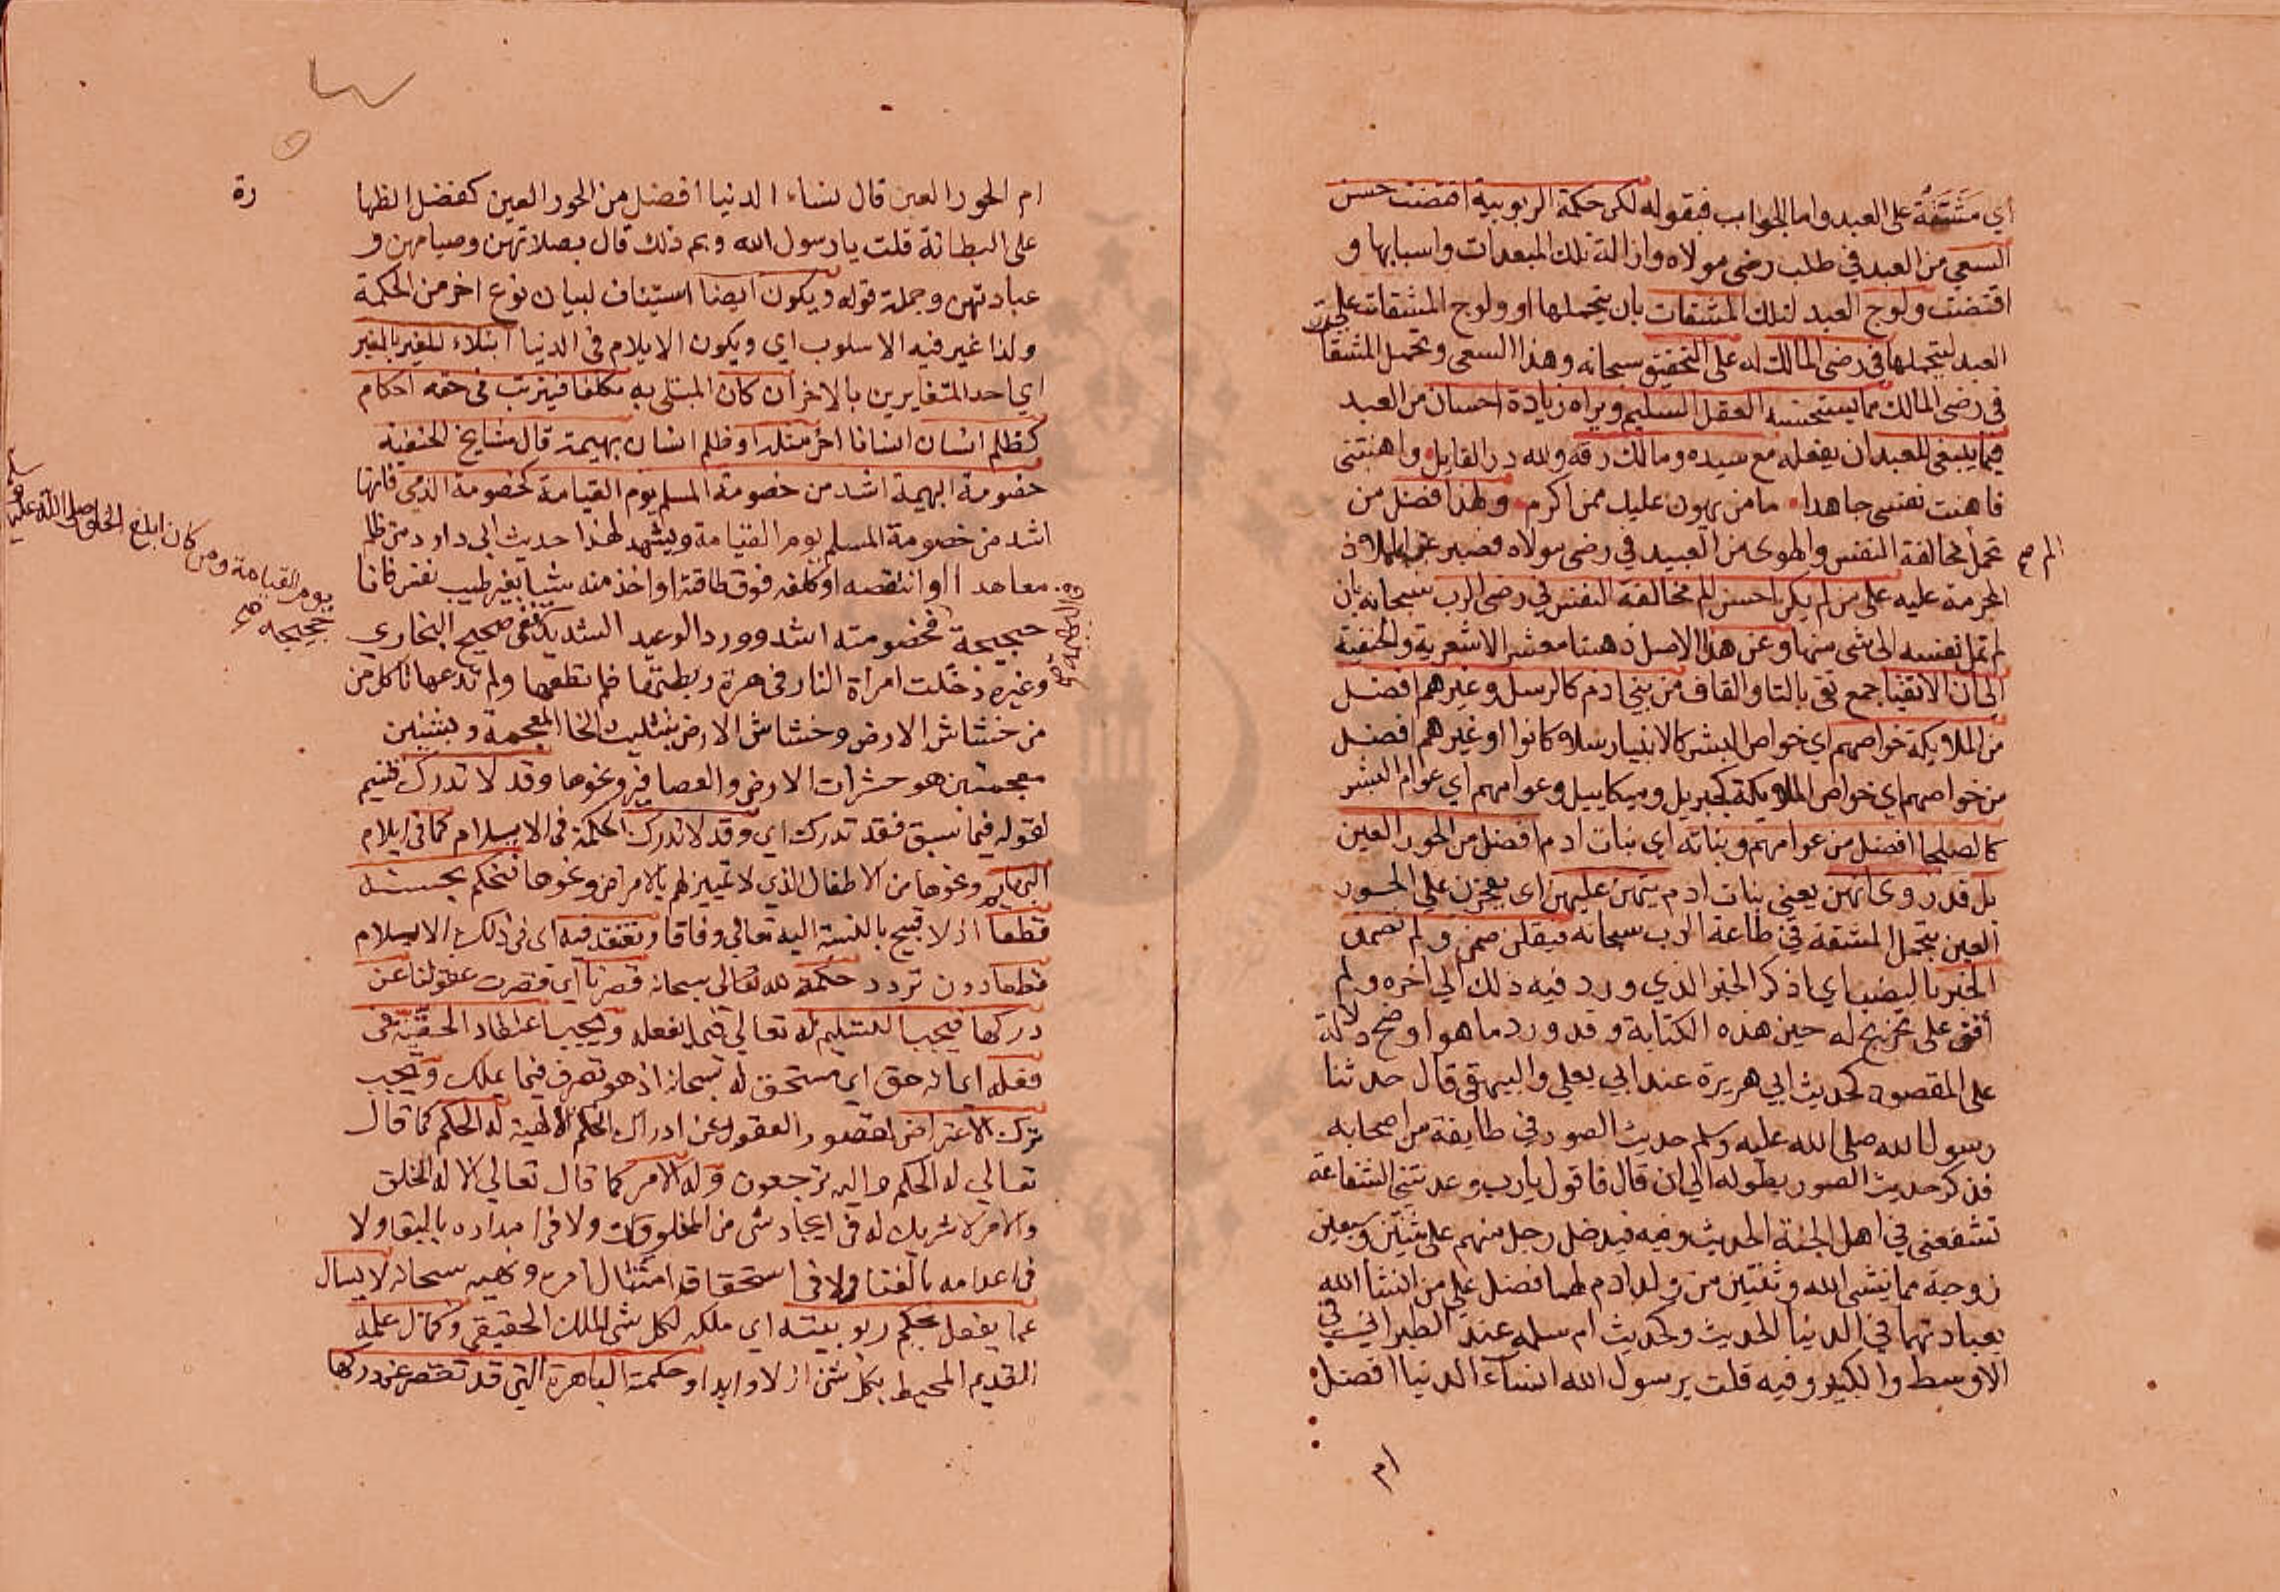 أي مَشَقَّةٌ على العبد واما الجواب فبقوله لكن حكمة الربوبية اقتضت حسن
السعي من العبد في طلب رضى مولاه وازالة تلك المبعدات واسبابها و
اقتضت ولوج العبد لتلك المشقات بان يتحملها او ولوج المشقات على
العبد ليتحملها في رضى المالك له على التحقيق سبحانه وهذا السعى وتحمل المشقا
في رضى المالك مما يستحسنه العقل السليم ويراه زيادة احسان من العبد
فيما ينبغى للعبد ان يفعله مع سيده ومالك رقه ولله در القايل واهنتنى
فاهنت نفسى جاهدا ما من يهون عليك ممن اكرم ولهذا فضل من
تحمل مخالفة النفس والهوى من العبيد في رضى مولاه فصبر عن الملاذ
المحرمة عليه على من لم يكن احسن الم مخالفة النفس في رضى الرب سبحانه بان
لم تمل نفسه الى شى منها وعن هذا الاصل ذهبنا معشر الاشعرية والحنفية
الى ان الاتقيا جمع تقى بالتا والقاف من بني ادم كالرسل وغيرهم افضل
من الملايكة خواصهم اي خواص البشر كالانبيا رسلا كانوا او غيرهم افضل
من خواصهم اي خواص الملايكة كجبريل وميكاييل وعوامهم اي عوام البشر
كالصلحا افضل من عوامهم وبناته اي بنات ادم افضل من الحور العين
بل قد روى انهن يعني بنات ادم يتهن عليهن اى يفخرن على الحور
العين بتحمل المشقة في طاعة الرب سبحانه فيقلن صمنا ولم تصمن
الخبر بالنصب اي اذكر الخبر الذي ورد فيه ذلك الى اخره ولم
أقف على تخريج له حين هذه الكتابة وقد ورد ما هو اوضح دلالة
على المقصود كحديث ابي هريرة عند ابي يعلى والبيهقى قال حدثنا
رسول الله صلى الله عليه وسلم حديث الصور في طايفة من اصحابه
فذكر حديث الصور بطوله الى ان قال فاقول يا رب وعدتني الشفاعة
تشفعنى في اهل الجنة الحديث وفيه فيدخل رجل منهم على ثنتين وسبعين
زوجة مما ينشى الله وثنتين من ولد ادم لهما فضل على من انشأ الله
بعبادتهما في الدنيا الحديث وكحديث ام سلمه عند الطبراني في
الاوسط والكبير وفيه قلت يرسول الله انساء الدنيا افضل
ام
الم صح
ام الحور العين قال نساء الدنيا افضل من الحور العين كفضل الظها
رة
على البطانة قلت يا رسول الله وبم ذلك قال بصلاتهن وصيامهن و
عبادتهن وجملة قوله ويكون ايضا استيناف لبيان نوع اخر من الحكمة
ولذا غير فيه الاسلوب اي ويكون الايلام فى الدنيا ابتلاء للغير بالغير
اي احد المتغايرين بالاخر ان كان المبتلى به مكلفا فيترتب فى حقه احكام
كظلم انسان انسانا اخر مثله او ظلم انسان بهيمة قال مشايخ الحنفية
خصومة البهيمة اشد من خصومة المسلم يوم القيامة كخصومة الذمي فانها
اشد من خصومة المسلم يوم القيامة ويشهد لهذا حديث ابى داود من ظلم
معاهدا او انتقصه او كلفه فوق طاقته او اخذ منه شيا بغير طيب نفس فانا
حجيجه فخصومته اشد وورد الوعيد الشديد ففى صحيح البخاري
وغيره دخلت امراة النار فى هرة ربطتها فلم تطعمها ولم تدعها تاكل من
من خشاش الارض وخشاش الارض بتثليث الخا المعجمة وبشينين
معجمتين هو حشرات الارض والعصافير ونحوها وقد لا تدرك قسيم
لقوله فيما سبق فقد تدرك اي وقد لا تدرك الحكمة فى الايلام كما فى ايلام
البهايم ونحوها من الاطفال الذي لا تمييز لهم بالامراض ونحوها فنحكم بحسنه
قطعا اذ لا قبيح بالنسبة اليه تعالى وفاقا ونعتقد فيه اى فى ذلك الايلام
قطعا دون تردد حكمة لله تعالى سبحانه قصرنا اي قصرت عقولنا عن
دركها فيجب التسليم له تعالي فيما يفعله ويجب اعتقاد الحقِّيّة فى
فعله اي انه حق اي مستحق له سبحانه اذ هو تصرف فيما يملك ويجب
ترك الاعتراض لقصور العقول عن ادراك الحكم الالهية له الحكم كما قال
تعالي له الحكم واليه ترجعون وله الامر كما قال تعالي الا له الخلق
والامر لا شريك له فى ايجاد شى من المخلوقات ولا فى امداده بالبقا ولا
فى اعدامه بالفنا ولا فى استحقاقه امتثال امره ونهيه سبحانه لا يسال
عما يفعل بحكم ربوبيته اي ملكه لكل شى الملك الحقيقي وكمال علمه
القديم المحيط بكل شى ازلا وابدا وحكمته الباهرة التى قد تقصر عن دركها
يوم القيامة ومن كان ابلغ الخلق صلى الله عليه وسلم
حجيجه صح